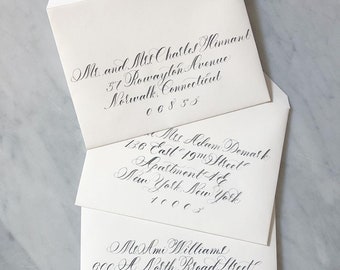 Mr. and Mrs Charles Hinnant
57 Rowayton Avenue
Norwalk, Connecticut
06853
Mrs Adam Demark
136 East 19th Street
New York New York
10003
Ms Ami Williams
North Broad Street